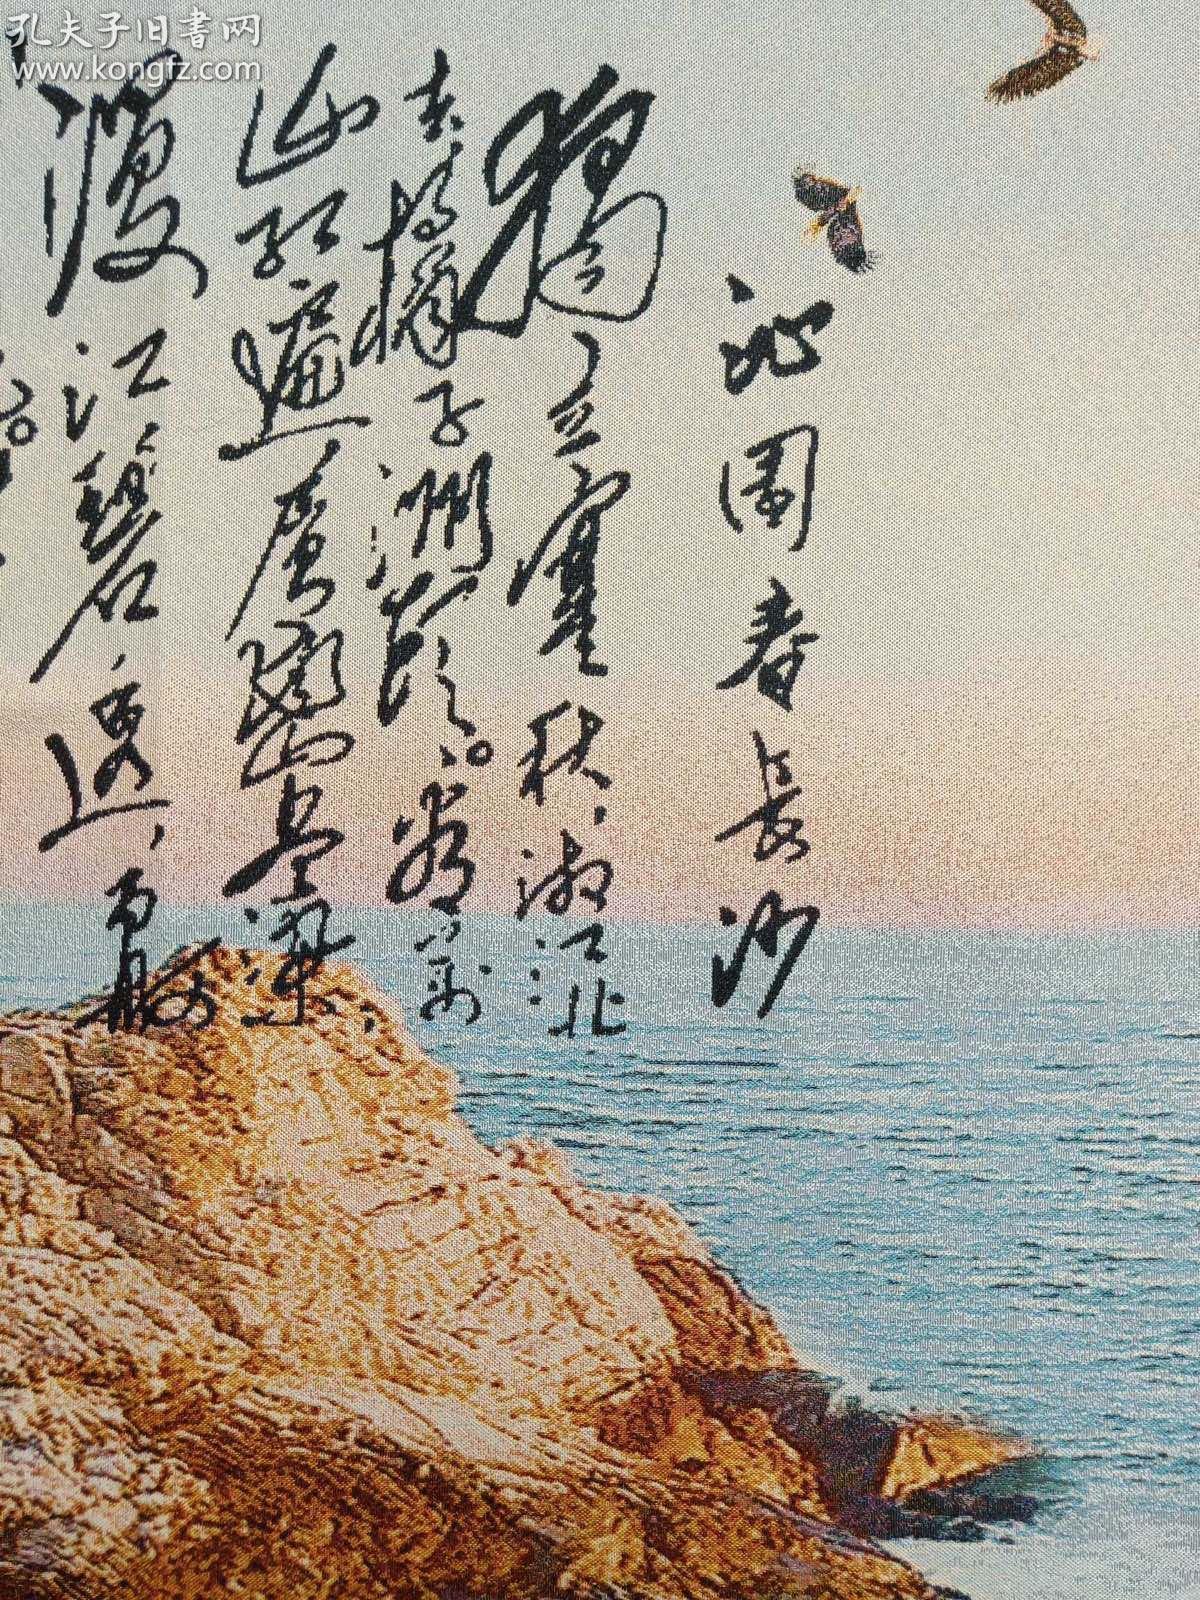 孔夫子旧書网
www.kongfz.com
沁園春 長沙
獨立寒秋，湘江北
去，橘子洲頭。看萬
山紅遍，層林盡染，
漫江碧透，百舸